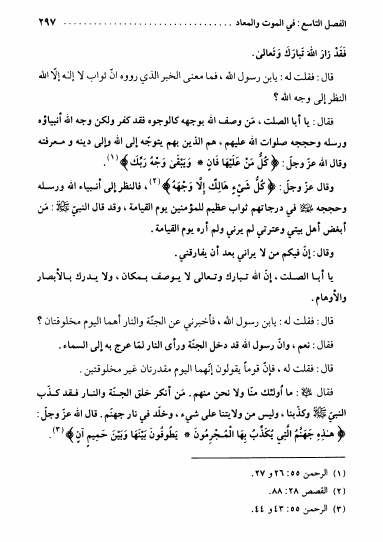 الفصل التاسع : في الموت والمعاد ٢٩٧
فَقَدْ زَارَ اللهَ تَبَارَكَ وَتَعالىٰ.
قال : فقلت له : يابن رسول الله ، فما معنى الخبر الذي رووه انّ ثواب لا إلـٰه إلّا الله
النظر إلى وجه الله ؟
فقال : يا أبا الصلت ، مَن وصف الله بوجهه كالوجوه فقد كفر ولكن وجه الله أنبياؤه
ورسله وحججه صلوات الله عليهم ، هم الذين بهم يتوجّه إلى الله وإلى دينه و معرفته
وقال الله عزّ وجلّ : ﴿ كُلُّ مَنْ عَلَيْهَا فَانٍ * وَيَبْقَىٰ وَجْهُ رَبِّكَ ﴾ (١).
وقال عزّ وجلّ : ﴿ كُلُّ شَيْءٍ هَالِكٌ إِلَّا وَجْهَهُ ﴾ (٢) ، فالنظر إلى أنبـياء الله ورسـله
وحججه ﷺ في درجاتهم ثواب عظيم للمؤمنين يوم القيامة ، وقد قال النبيّ ﷺ : مَن
أبغض أهل بيتي وعترتي لم يرني ولم أره يوم القيامة .
وقال : إنّ فيكم من لا يراني بعد أن يفارقني .
يا أبـا الصلت ، إنّ الله تـبارك وتـعالى لا يـوصف بـمكان ، ولا يـدرك بـالأبصار
والأوهام .
قال : فقلت له : يابن رسول الله ، فأخبرني عن الجنّة والنار أهما اليوم مخلوقتان ؟
فقال : نعم ، وانّ رسول الله قد دخل الجنّة ورأى النار لمّا عرج به إلى السماء .
قال : فقلت له ، فإنّ قوماً يقولون إنّهما اليوم مقدرتان غير مخلوقتين .
فقال : ما أولئك منّا ولا نحن منهم . مَن أنكر خلق الجنّـة والنـار فـقد كـذّب
النبيّ ﷺ وكذّبنا ، وليس من ولايتنا على شيء ، وخلّد في نار جهنّم . قال الله عزّ وجلّ :
﴿ هَـٰذِهِ جَهَنَّمُ الَّتِي يُكَذِّبُ بِهَا الْمُـجْرِمُونَ * يَطُوفُونَ بَيْنَهَا وَبَيْنَ حَمِيمٍ آنٍ ﴾ (٣).
(١) الرحمن ٥٥: ٢٦ و ٢٧.
(٢) القصص ٢٨: ٨٨.
(٣) الرحمن ٥٥: ٤٣ و ٤٤.